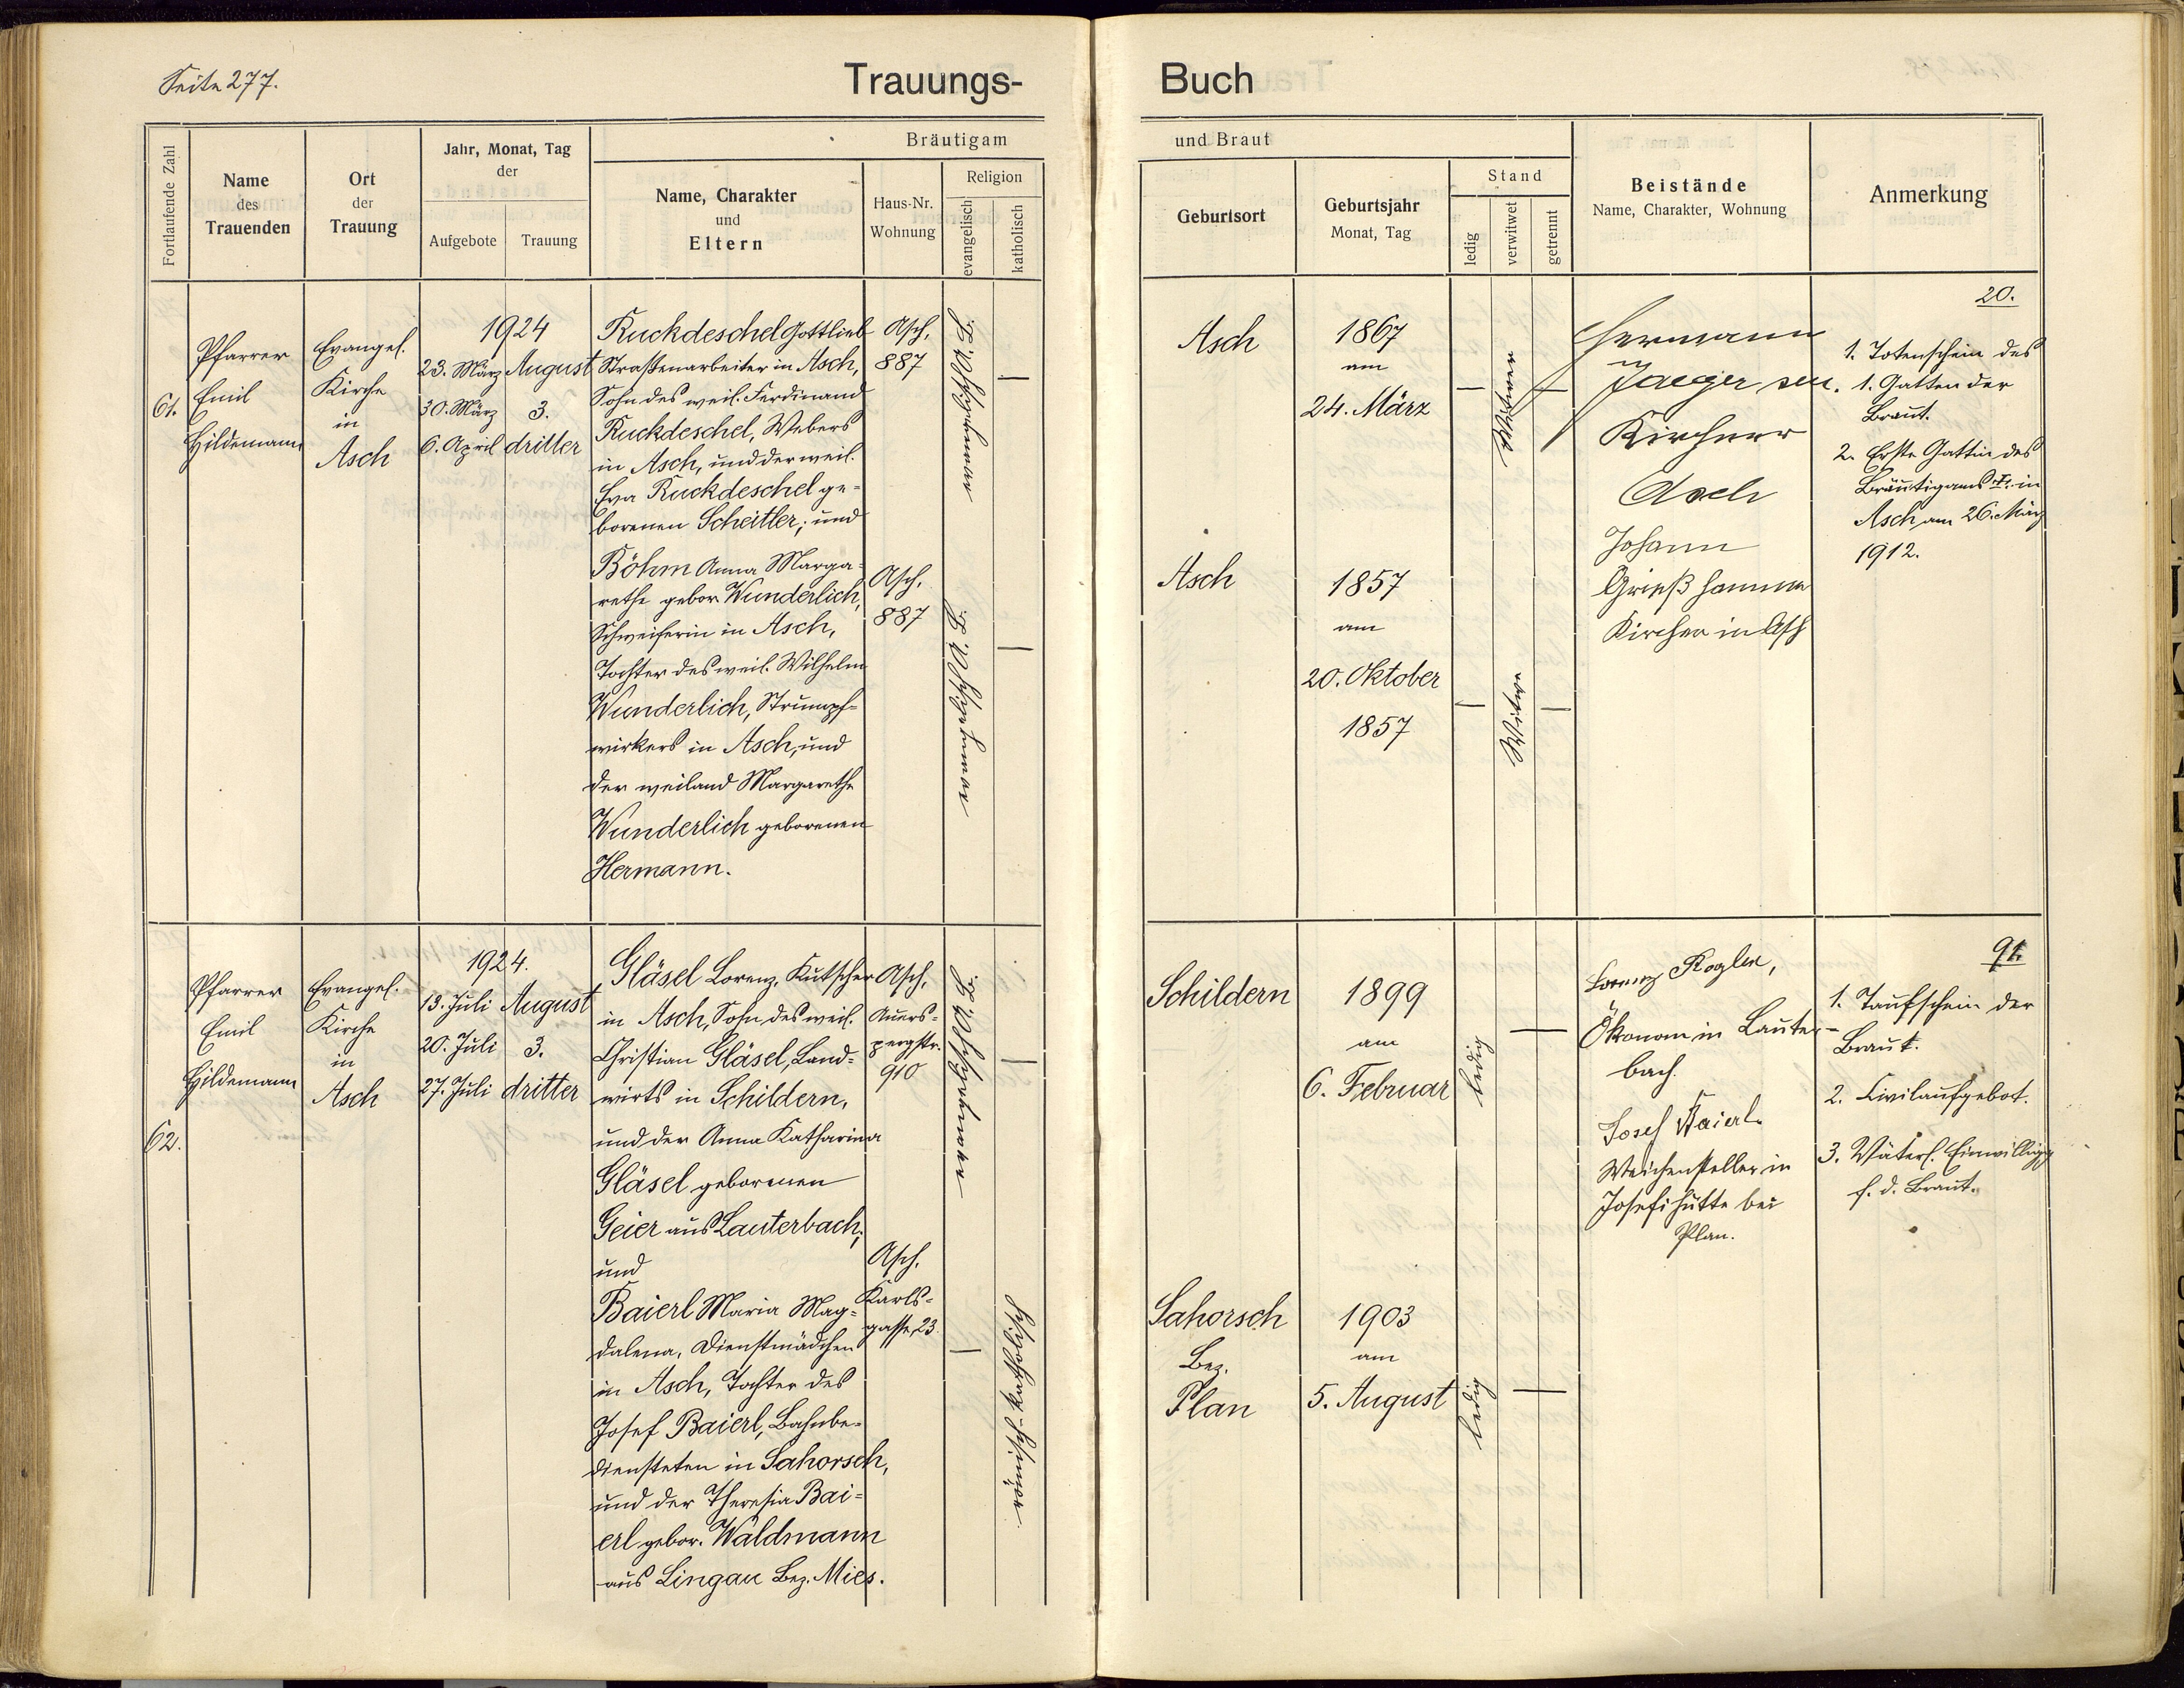 Seite 277.
Trauungs-
Buch
Fortlaufende Zahl
Name
des
Trauenden
Ort
der
Trauung
Jahr, Monat, Tag
der
Aufgebote
Trauung
Bräutigam
Name, Charakter
und
Eltern
Haus-Nr.
Wohnung
Religion
evangelisch
katholisch
und Braut
Geburtsort
Geburtsjahr
Monat, Tag
Stand
ledig
verwitwet
getrennt
Beistände
Name, Charakter, Wohnung
Anmerkung
61.
Pfarrer
Emil
Hildemann
Evangel.
Kirche
in
Asch
1924
23. März
30. März
6. April
August
3.
dritter
Ruckdeschel Gottlieb
Straßenarbeiter in Asch,
Sohn des weil. Ferdinand
Ruckdeschel, Webers
in Asch, und der weil.
Eva Ruckdeschel ge-
borenen Scheitler; und
Böhm Anna Marga-
rethe gebor. Wunderlich,
Schweiferin in Asch,
Tochter des weil. Wilhelm
Wunderlich, Strumpf-
wirkers in Asch, und
der weiland Margarethe
Wunderlich geborenen
Hermann.
Asch,
887
Asch,
887
evangelisch A.B.
evangelisch A.B.
Asch
1867
am
24. März
Witwer
Asch
1857
am
20. Oktober
1857
Witwe
Hermann
Jaeger sen.
Kirchner
Asch
Johann
Grießhammer
Kirchner in Asch
20.
1. Totenschein des
1. Gatten der
Braut.
2. Erste Gattin des
Bräutigams †. in
Asch am 26. März
1912.
62.
Pfarrer
Emil
Hildemann
Evangel.
Kirche
in
Asch
1924.
13. Juli
20. Juli
27. Juli
August
3.
dritter
Gläsel Lorenz, Kutscher
in Asch, Sohn des weil.
Christian Gläsel, Land-
wirts in Schildern,
und der Anna Katharina
Gläsel geborenen
Geier aus Lauterbach;
und
Baierl Maria Mag-
dalena, Dienstmädchen
in Asch, Tochter des
Josef Baierl, Bahnbe-
diensteten in Sahorsch,
und der Theresia Bai-
erl gebor. Waldmann
aus Lingau Bez. Mies.
Asch,
Auers-
pergstr.
910
Asch,
Karls-
gasse 23
evangelisch A.B.
römisch-katholisch
Schildern
1899
am
6. Februar
ledig
Sahorsch
Bez.
Plan
1903
am
5. August
ledig
Lorenz Kogler,
Ökonom in Lauter-
bach.
Josef Baierl
Weichensteller in
Josefihütte bei
Plan.
91.
1. Taufschein der
Braut.
2. Civilaufgebot.
3. Väterl. Einwilligg
f. d. Braut.